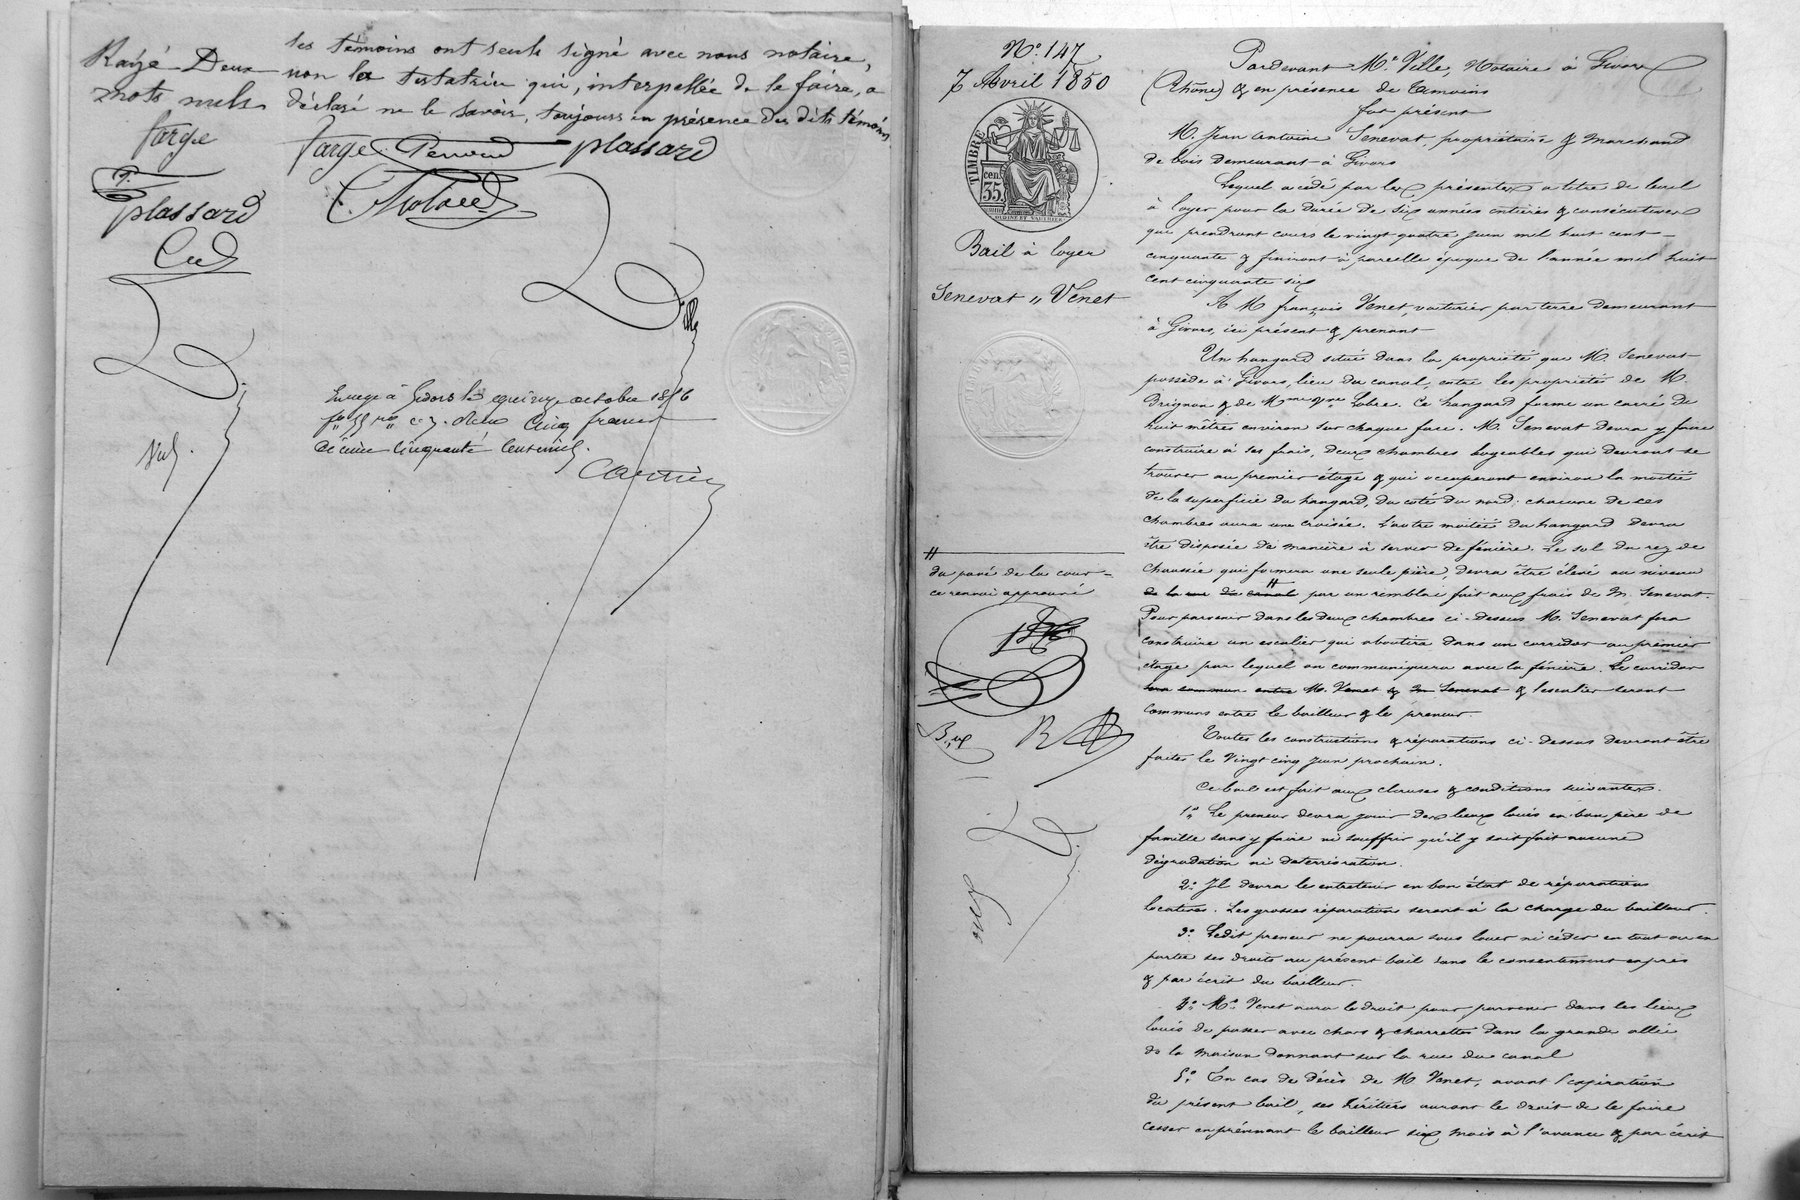 les témoins ont seuls signé avec nous notaire,
non la testatrice qui, interpellée de le faire, a
déclaré ne le savoir, toujours en présence des dits témoins
Rayé Deux
mots nuls
farge
plassard
farge plassard
Enregé à Givors le quinze octobre 18
cinq francs
décime cinquante centimes.
Nº 147
7 Avril 1850
TIMBRE
35 cen.
OUDINÉ ET VAUTHIER
Bail à loyer
Senevat " Venet
du pavé de la cour =
ce renvoi approuvé
Pardevant Me Ville, Notaire à Givors
(Rhône) & en présence de témoins
fut présent
M. Jean Antoine Senevat, propriétaire & marchand
de bois demeurant à Givors
Lequel a cédé par les présentes à titre de bail
à loyer pour la durée de six années entières & consécutives
qui prendront cours le vingt quatre juin mil huit cent
cinquante & finiront à pareille époque de l'année mil huit
cent cinquante six
A M françois Venet, voiturier par terre demeurant
à Givors, ici présent & prenant
Un hangard situé dans la propriété que M. Senevat
possède à Givors, lieu du canal, entre les propriétés de M.
Drignon & de Mme Vve Labre. Ce hangard forme un carré de
huit mètres environ sur chaque face. M. Senevat devra y faire
construire à ses frais, deux chambres logeables qui devront se
trouver au premier étage & qui occuperont environ la moitié
de la superficie du hangard, du coté du nord; chacune de ces
chambres aura une croisée. L'autre moitié du hangard devra
être disposée de manière à servir de fénière. Le sol du rez de
chaussée qui formera une seule pièce, devra être élevé au niveau
de la rue du canal par un remblai fait aux frais de M. Senevat.
Pour parvenir dans les deux chambres ci-dessus M. Senevat fera
construire un escalier qui aboutira dans un corridor au premier
étage par lequel on communiquera avec la fénière. Le corridor
sera commun entre M. Venet & M Senevat & l'escalier seront
communs entre le bailleur & le preneur.
Toutes les constructions & réparations ci-dessus devront être
faites le vingt cinq juin prochain.
Ce bail est fait aux clauses & conditions suivantes.
1º Le preneur devra jouir des lieux loués en bon père de
famille sans y faire ni souffrir qu'il y soit fait aucune
dégradation ni détérioration.
2º Il devra les entretenir en bon état de réparations
locatives. Les grosses réparations seront à la charge du bailleur.
3º Ledit preneur ne pourra sous louer ni céder en tout ou en
partie ses droits au présent bail sans le consentement exprès
& par écrit du bailleur.
4º Mr Venet aura le droit pour parvenir dans les lieux
loués de passer avec chars & charrettes dans la grande allée
de la maison donnant sur la rue du canal
5º En cas de décès de M Venet, avant l'expiration
du présent bail, ses héritiers auront le droit de le faire
cesser en prévenant le bailleur six mois à l'avance & par écrit